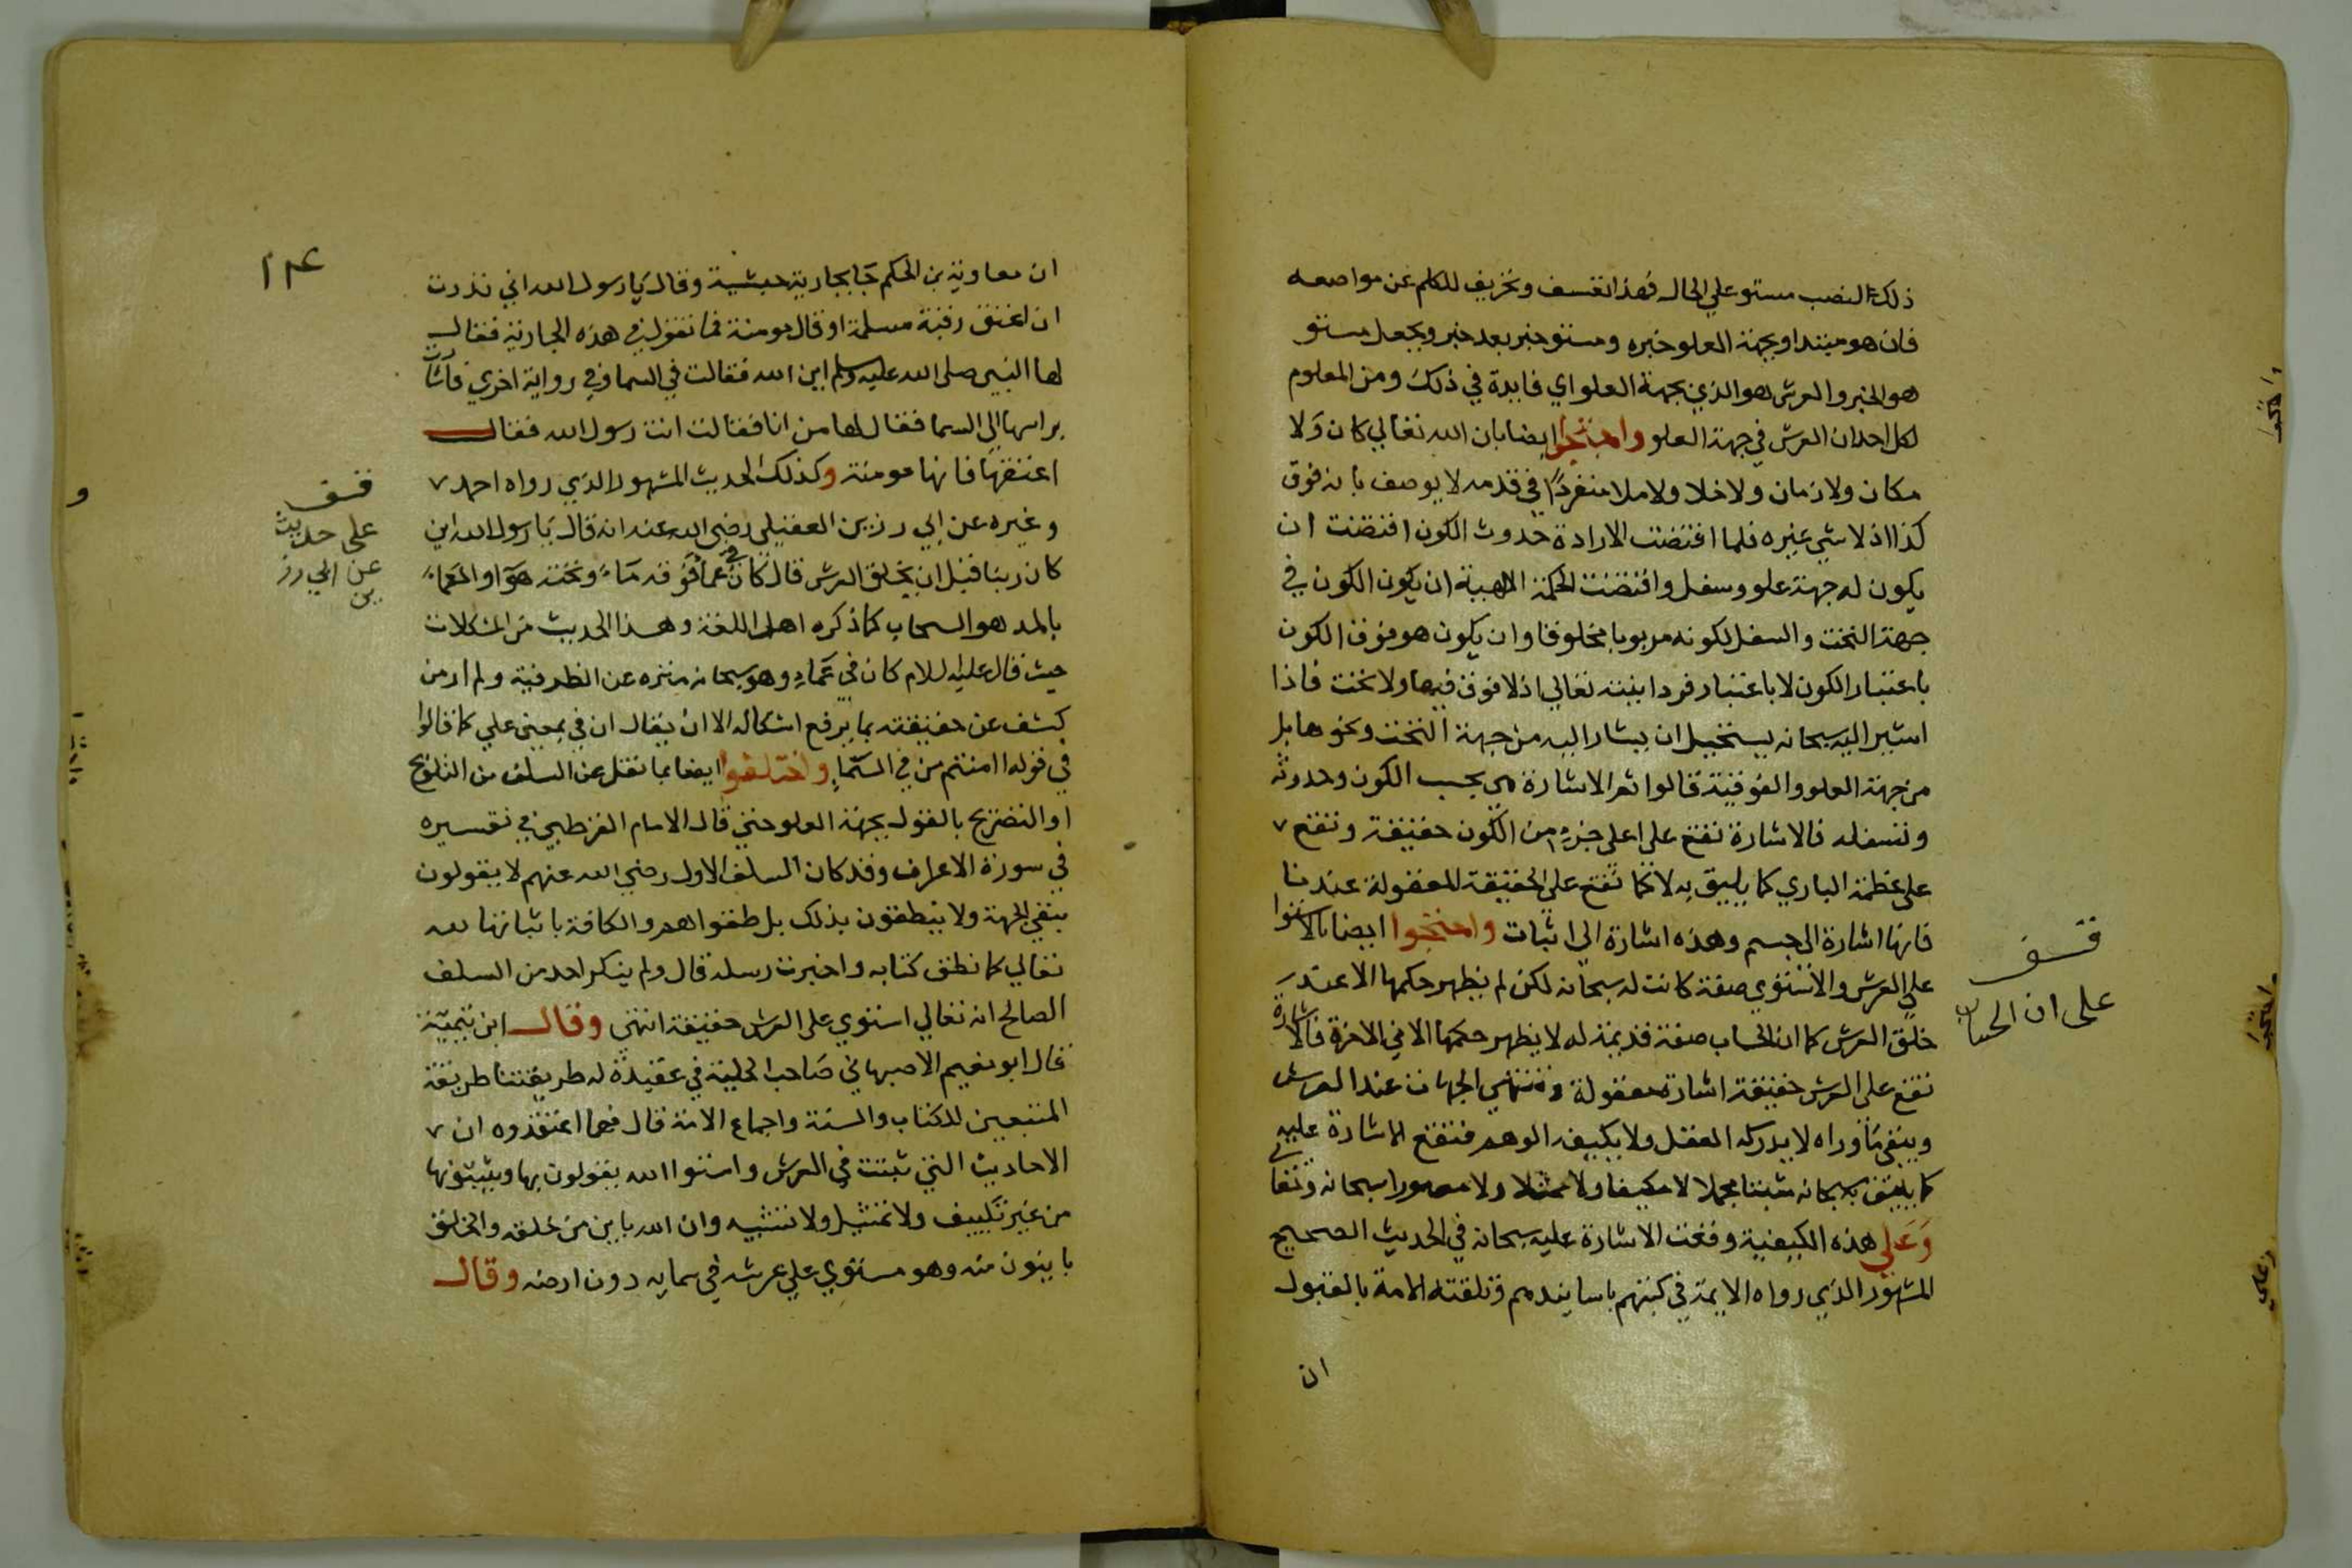 ذلك النصب مستو علي الحال فهذا تعسف وتحريف للكلم عن مواضعه
فان هو مبتدا وبجهة العلو خبره ومستو خبر بعد خبر ويجعل مستو
هو الخبر والعرش هو الذي بجهة العلو اي فايدة في ذلك ومن المعلوم
لكل احد ان العرش في جهة العلو واحتجوا ايضا بان الله تعالي كان ولا
مكان ولا زمان ولا خلا ولا ملا منفردا في قدمه لا يوصف بانه فوق
كذا اذ لا شي غيره فلما اقتضت الارادة حدوث الكون اقتضت ان
يكون له جهة علو وسفل واقتضت الحكمة الالهية ان يكون الكون في
جهة التحت والسفل لكونه مربوبا مخلوقا وان يكون هو فوق الكون
باعتبار الكون لا باعتبار فردانيته تعالي اذ لا فوق فيها ولا تحت فاذا
اشير اليه سبحانه يستحيل ان يشار اليه من جهة التحت ونحوها بل
من جهة العلو والفوقية قالوا ثم الاشارة هي بحسب الكون وحدوثه
وتسفله فالاشارة تقع علي اعلي جزء من الكون حقيقة وتقع
علي عظمة الباري كما يليق به لا كما تقع علي الحقيقة المعقولة عندنا
فانها اشارة الي جسم وهذه اشارة الي اثبات واحتجوا ايضا بالاستوا
علي العرش والاستوي صفة كانت له سبحانه لكن لم يظهر حكمها الا عند
خلق العرش كما ان الحساب صفة قديمة له لا يظهر حكمها الا في الاخرة فالاشارة
تقع علي العرش حقيقة اشارة معقولة وتنتهي الجهات عند العرش
ويبقي ما وراه لا يدركه العقل ولا يكيفه الوهم فتقع الاشارة عليه
كما يليق به سبحانه مثبتا مجملا لا مكيفا ولا ممثلا ولا مصورا سبحانه وتعالي
وعلي هذه الكيفية وقعت الاشارة عليه سبحانه في الحديث الصحيح
المشهور الذي رواه الايمة في كتبهم باسانيدهم وتلقته الامة بالقبول
ان
قف
على ان الحساب
ان معاوية بن الحكم جا بجارية حبشية وقال يا رسول الله اني نذرت
ان اعتق رقبة مسلمة او قال مومنة فما تقول في هذه الجارية فقال
لها النبي صلى الله عليه وسلم اين الله فقالت في السما وفي رواية اخري فاشارت
براسها الي السما فقال لها من انا فقالت انت رسول الله فقال
اعتقها فانها مومنة وكذلك الحديث المشهور الذي رواه احمد
وغيره عن ابي رزين العقيلي رضي الله عنه انه قال يا رسول الله اين
كان ربنا قبل ان يخلق العرش قال كان في عما فوقه ماء وتحته هواء والعماء
بالمد هو السحاب كما ذكره اهل اللغة وهذا الحديث من المشكلات
حيث قال عليه السلام كان في عماء وهو سبحانه منزه عن الظرفية ولم ار من
كشف عن حقيقته بما يرفع اشكاله الا ان يقال ان في بمعني علي كما قالوا
في قوله اامنتم من في السماء واختلفوا ايضا بما نقل عن السلف من التلويح
او التصريح بالقول بجهة العلو حتي قال الامام القرطبي في تفسيره
في سورة الاعراف وقد كان السلف الاول رضي الله عنهم لا يقولون
بنفي الجهة ولا ينطقون بذلك بل نطقوا هم والكافة باثباتها لله
تعالي كما نطق كتابه واخبرت رسله قال ولم ينكر احد من السلف
الصالح انه تعالي استوي علي العرش حقيقة انتهي وقال ابن تيمية
قال ابو نعيم الاصبهاني صاحب الحلية في عقيدة له طريقتنا طريقة
المتبعين للكتاب والسنة واجماع الامة قال فمما اعتقدوه ان
الاحاديث التي ثبتت في العرش واستوا الله يقولون بها ويثبتونها
من غير تكييف ولا تمثيل ولا تشبيه وان الله باين من خلقه والخلق
باينون منه وهو مستوي علي عرشه في سمايه دون ارضه وقال
قف
على حديث
عن ابي رز
ين